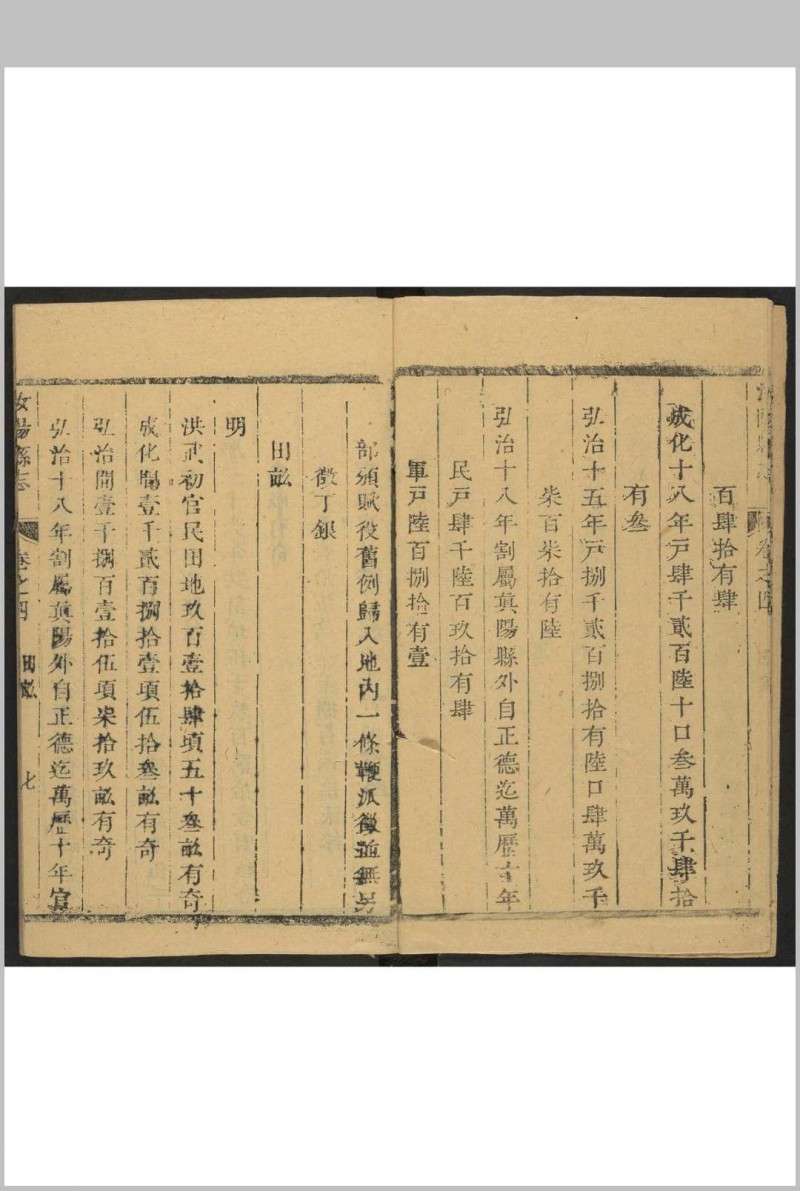 百肆拾有肆
成化十八年戸肆千貳百陸十口叁萬玖千肆拾
有叁
弘治十五年戸捌千貳百捌拾有陸口肆萬玖千
柒百柒拾有陸
弘治十八年割屬眞陽縣外自正德迄萬歷十年
民戸肆千陸百玖拾有肆
軍戸陸百捌拾有壹
部頒賦役舊例歸入地內一條鞭派徵並無另
徵丁銀
田畝
明
洪武初官民田地玖百壹拾肆頃五十叁畝有奇
成化間壹千貳百捌拾壹項伍拾叁畝有奇
弘治間壹千捌百壹拾伍項柒拾玖畝有奇
弘治十八年割屬眞陽外自正德迄萬歷十年官
汝陽縣志 卷之四 田畝 七